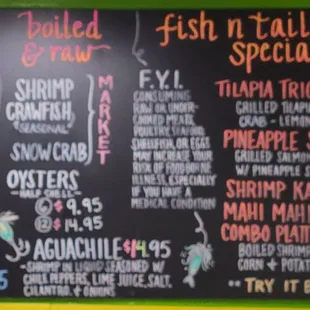 boiled
& raw
SHRIMP
CRAWFISH
"SEASONAL"
SNOW CRAB
MARKET
OYSTERS
~HALF SHELL~
6 $9.95
12 $14.95
AGUACHILE $14.95
~SHRIMP IN LIQUID SEASONED W/
CHILE PEPPERS, LIME JUICE, SALT,
CILANTRO, + ONIONS
F.Y.I.
CONSUMING
RAW OR UNDER-
COOKED MEATS,
POULTRY, SEAFOOD,
SHELLFISH, OR EGGS
MAY INCREASE YOUR
RISK OF FOODBORNE
ILLNESS, ESPECIALLY
IF YOU HAVE A
MEDICAL CONDITION
fish n tail
specia
TILAPIA TRIO
GRILLED TILAPIA
CRAB - LEMON
PINEAPPLE S
GRILLED SALMON
W/ PINEAPPLE S
SHRIMP KA
MAHI MAHI
COMBO PLATT
BOILED SHRIMP
CORN + POTAT
** TRY IT B
5